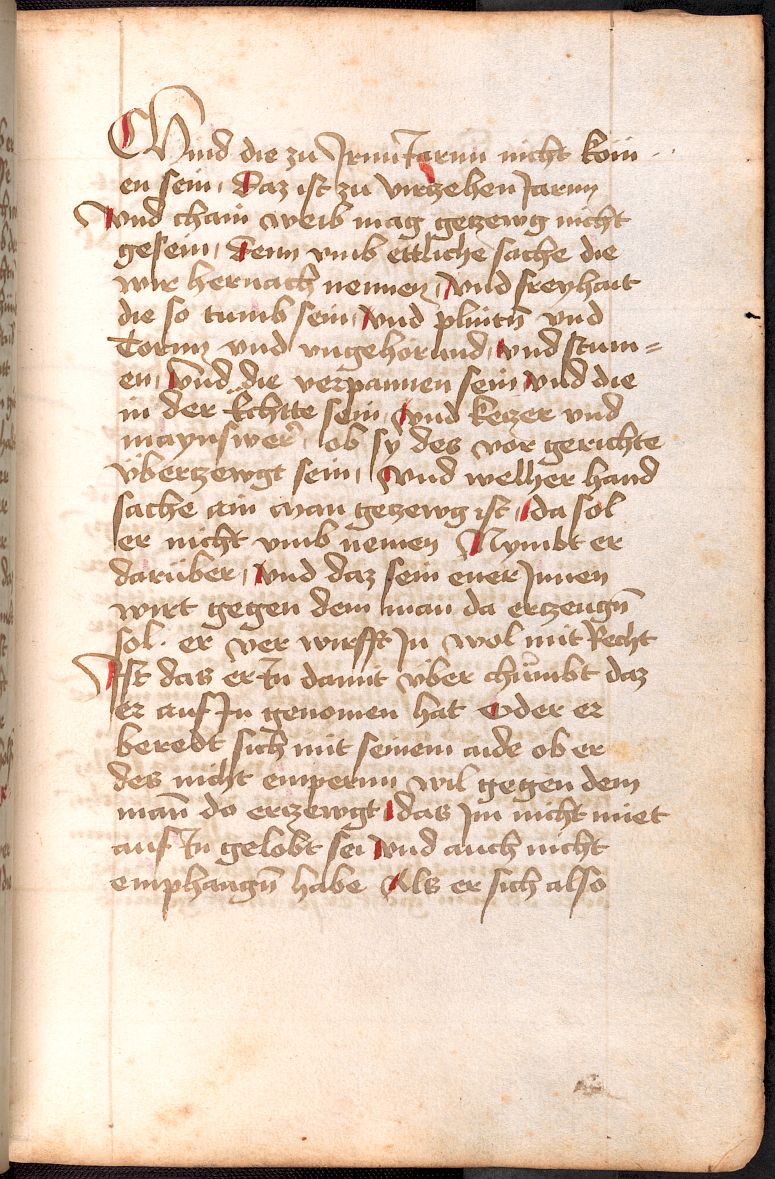 Chind die zu Irnn Iarnn nicht kom
en sein, daz ist zu virczehen Iarnn
Vnd chain weib mag geczewg nicht
gesein, denn vmb ettliche sache die
wir hernach nennen, Vnd freyhait
die so tumb sein, Vnd plintn̄ vnd
Tornn vnd vngehörund, vnd stum=
en, Vnd die verpannen sein Vnd die
in der Echtte sein, Vnd keczer vnd
maynswer̄, ob sÿ des vor gerichte
überczewgt sein, Vnd welher hand
sache ain man geczewg ist, da sol
er nicht vmb nemen Nymbt er
darüber, Vnd daz sein ener Innen
wirt gegen dem man da erczeugn̄
sol. er ver wirfft In wol mit Recht
Ist das er In damit über chümbt daz
er auf In genomen hat Oder er
beredt sich mit seinem aide ob er
des nicht empernn wil gegen dem
man̄ do erczewgt, das Im nicht miet
auf In gelobt sei Vnd auch nicht
emphangn̄ habe Als er sich also